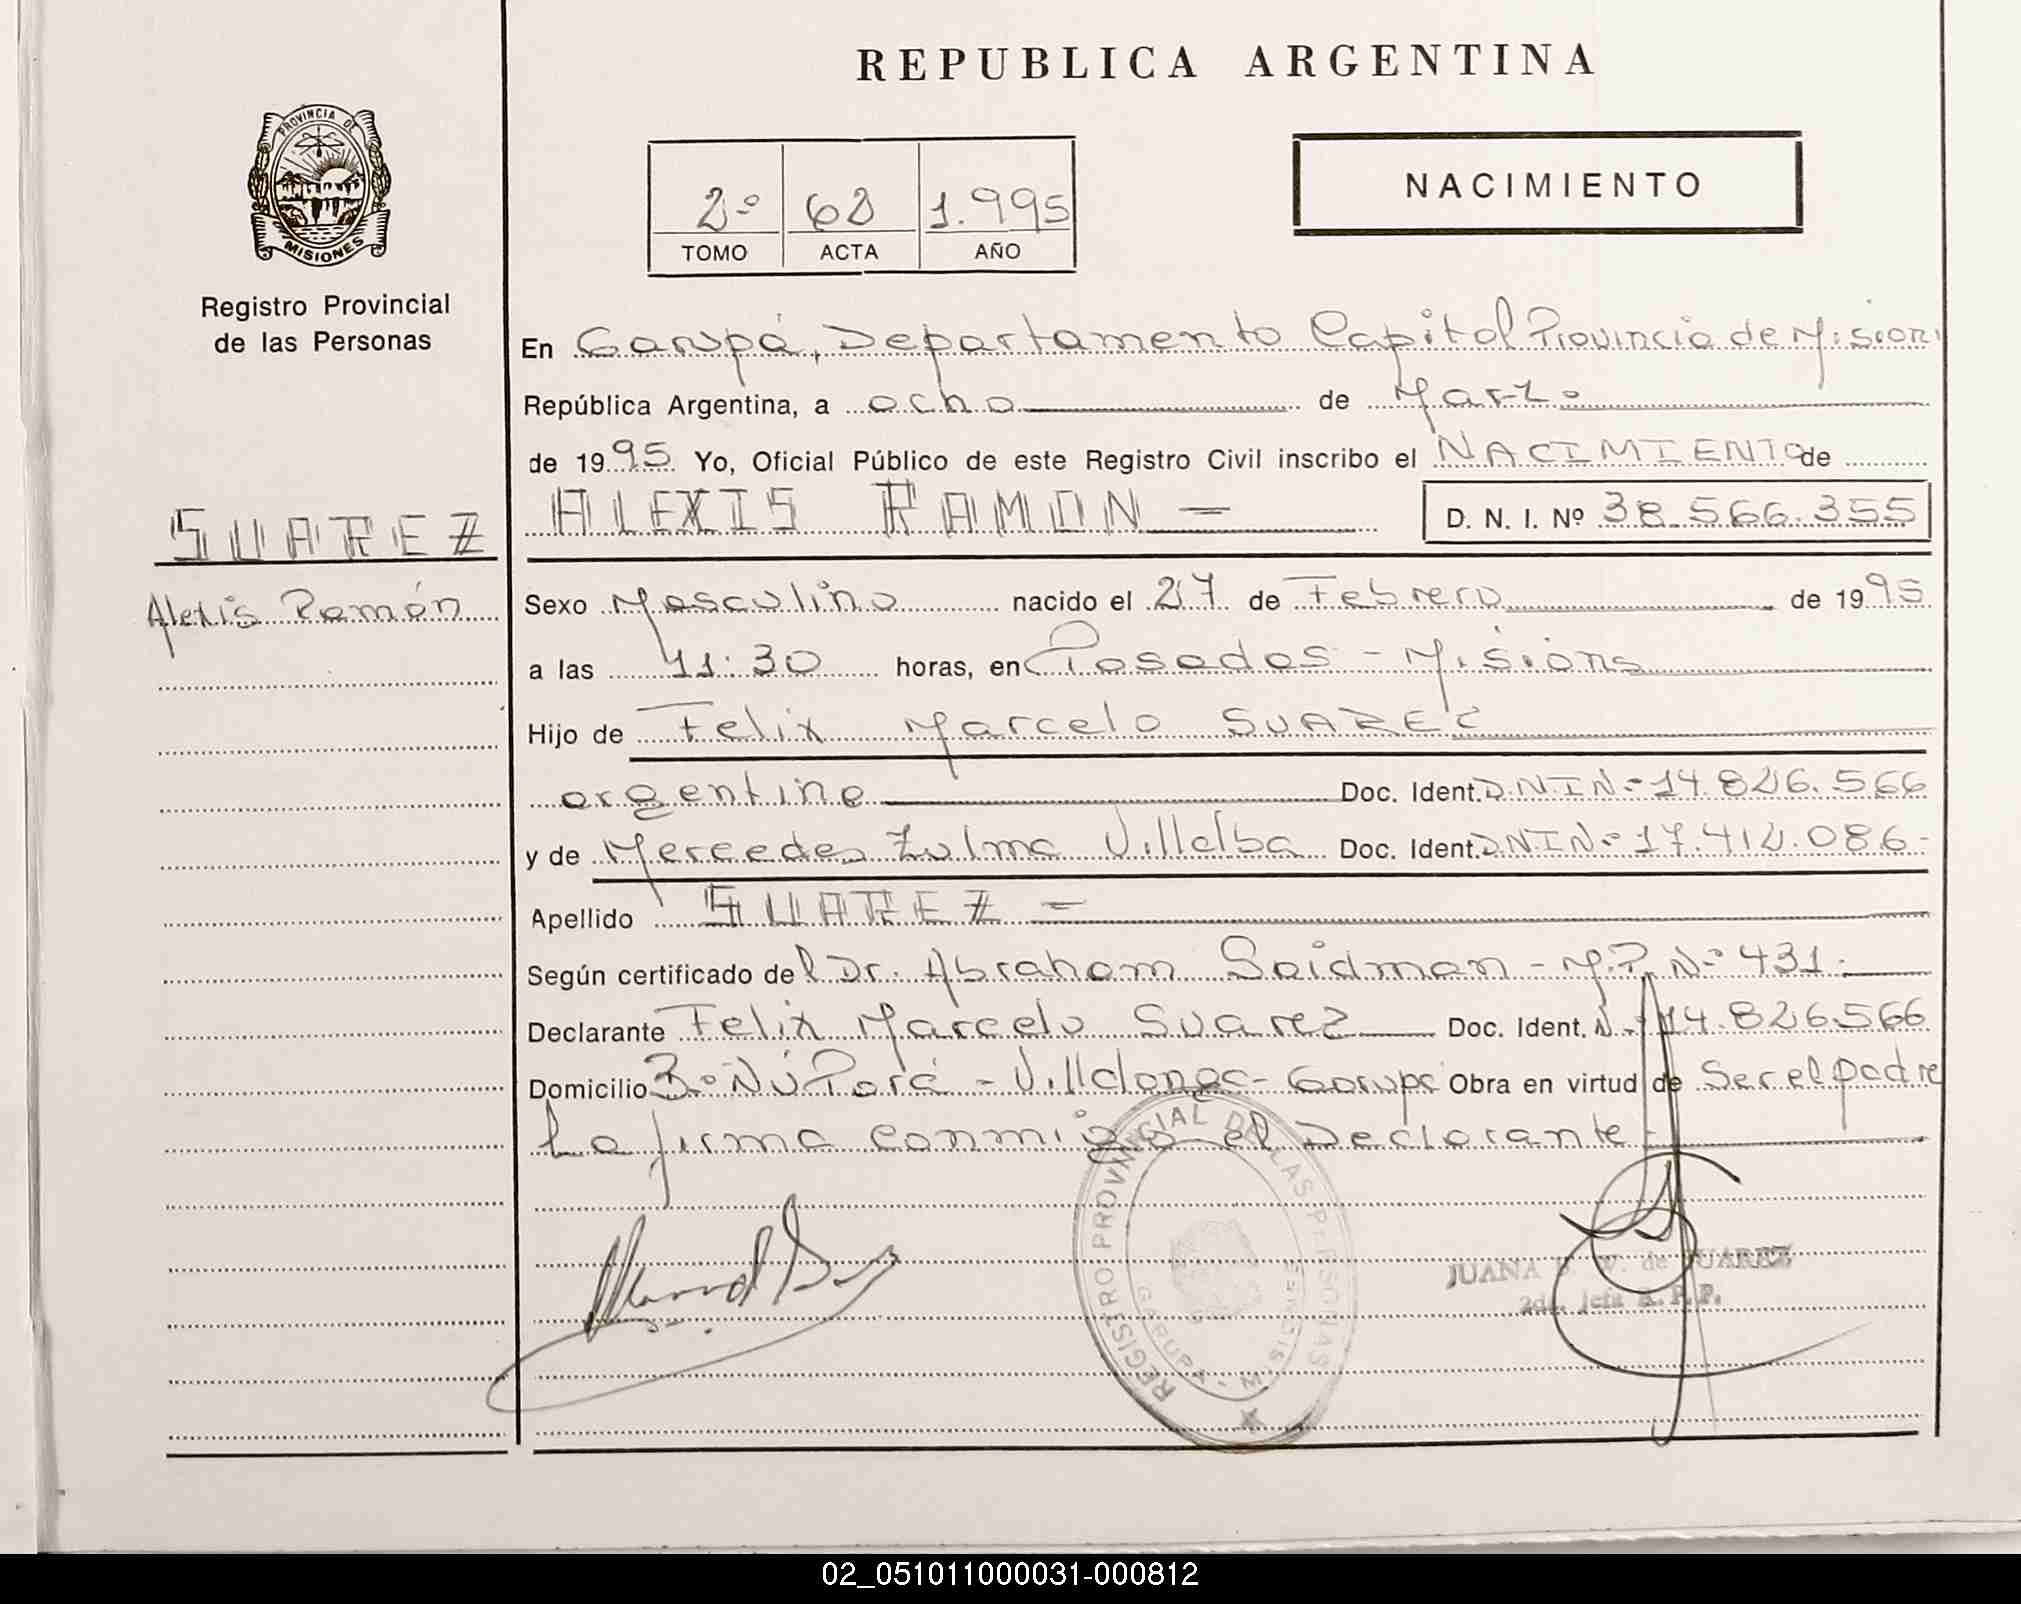 REPUBLICA ARGENTINA
PROVINCIA DE
MISIONES
Registro Provincial
de las Personas
2º 62 1.995
TOMO ACTA AÑO
NACIMIENTO
En Garupá, Departamento Capital Provincia de Mision
República Argentina, a ocho de Marzo
de 1995 Yo, Oficial Público de este Registro Civil inscribo el NACIMIENTO de
ALEXIS RAMON - D. N. I. Nº 38.566.355
SUAREZ
Alexis Ramón
Sexo Masculino nacido el 27 de Febrero de 1995
a las 11:30 horas, en Posadas - Misions
Hijo de Felix Marcelo SUAREZ
argentino Doc. Ident. DNI Nº 14.826.566
y de Mercedes Zulma Villalba Doc. Ident. DNI Nº 17.412.086-
Apellido SUAREZ -
Según certificado del Dr. Abraham Saidman - M.P. Nº 431.
Declarante Felix Marcelo Suarez Doc. Ident. Nº 14.826.566
Domicilio Bº Ñú Porá - Villalonga - Garupá Obra en virtud de Ser el padre
La firma conmigo el Declarante
REGISTRO PROVINCIAL DE LAS PERSONAS
GARUPA - MISIONES
JUANA W. de SUAREZ
2da. Jefa R. P. P.
02_051011000031-000812